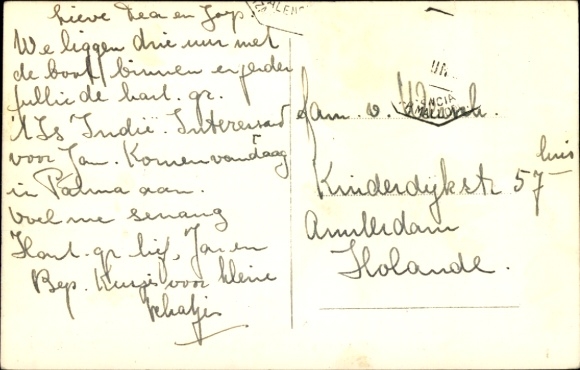 Lieve Dea en Joop.
We liggen drie uur met
de boot binnen en zenden
jullie de hart. gr.
't Is Indië. Interessant
voor Jan. Komen vandaag
in Palma aan.
Voel me senang
Hart. gr. lief, Jan en
Bep. Kusjes voor kleine
schatjes
Fam. v.
Kinderdijkstr 57 huis
Amsterdam
Holande.